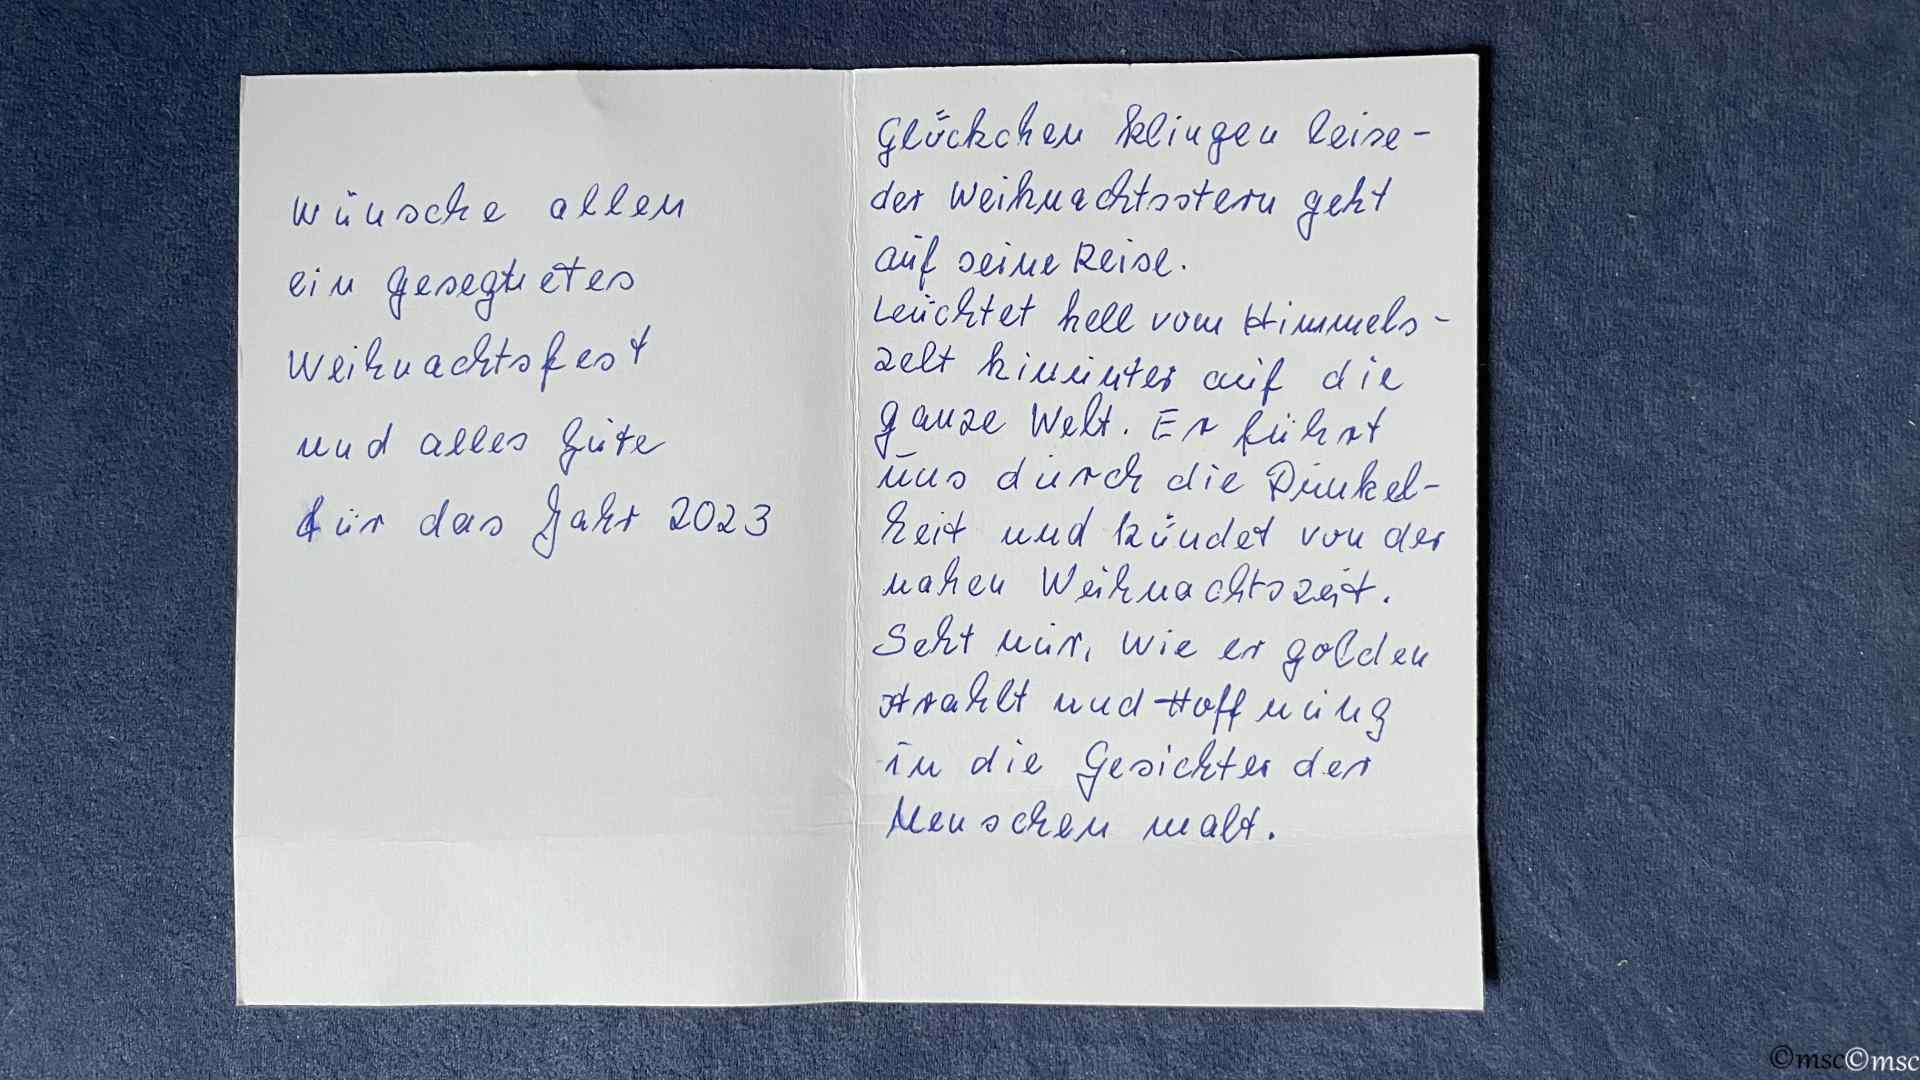 wünsche allen
ein gesegnetes
Weihnachtsfest
und alles Gute
für das Jahr 2023
Glöckchen klingen leise-
der Weihnachtsstern geht
auf seine Reise.
Leuchtet hell vom Himmels-
zelt hinunter auf die
ganze Welt. Er führt
uns durch die Dunkel-
heit und kündet von der
nahen Weihnachtszeit.
Seht nur, wie er golden
strahlt und Hoffnung
in die Gesichter der
Menschen malt.
©msc©msc